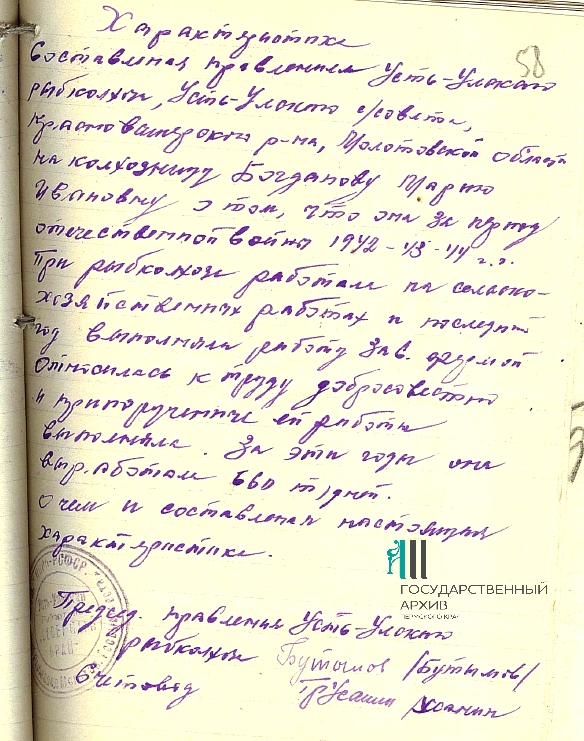 Характеристика
58
составленая правлением Усть-Улского
рыбколхоза, Усть-Улского с/совета,
Красновишерского р-на, Молотовской области
на колхозницу Богданову Марию
Ивановну о том, что она за период
отечественной войны 1942-43-44 г.г.
при рыбколхозе работала на сельско-
хозяйственных работах и последний
год выполняла работу зав. фермой
Относилась к труду добросовестно
и припорученные ей работы
выполняла. За эти годы она
выработала 660 т/дней.
О чем и составленая настоящая
характеристика.
ГОСУДАРСТВЕННЫЙ
АРХИВ
ПЕРМСКОГО КРАЯ
Председ. правления Усть-Улского
рыбколхоза Бутымов /Бутымов/
Счетовод